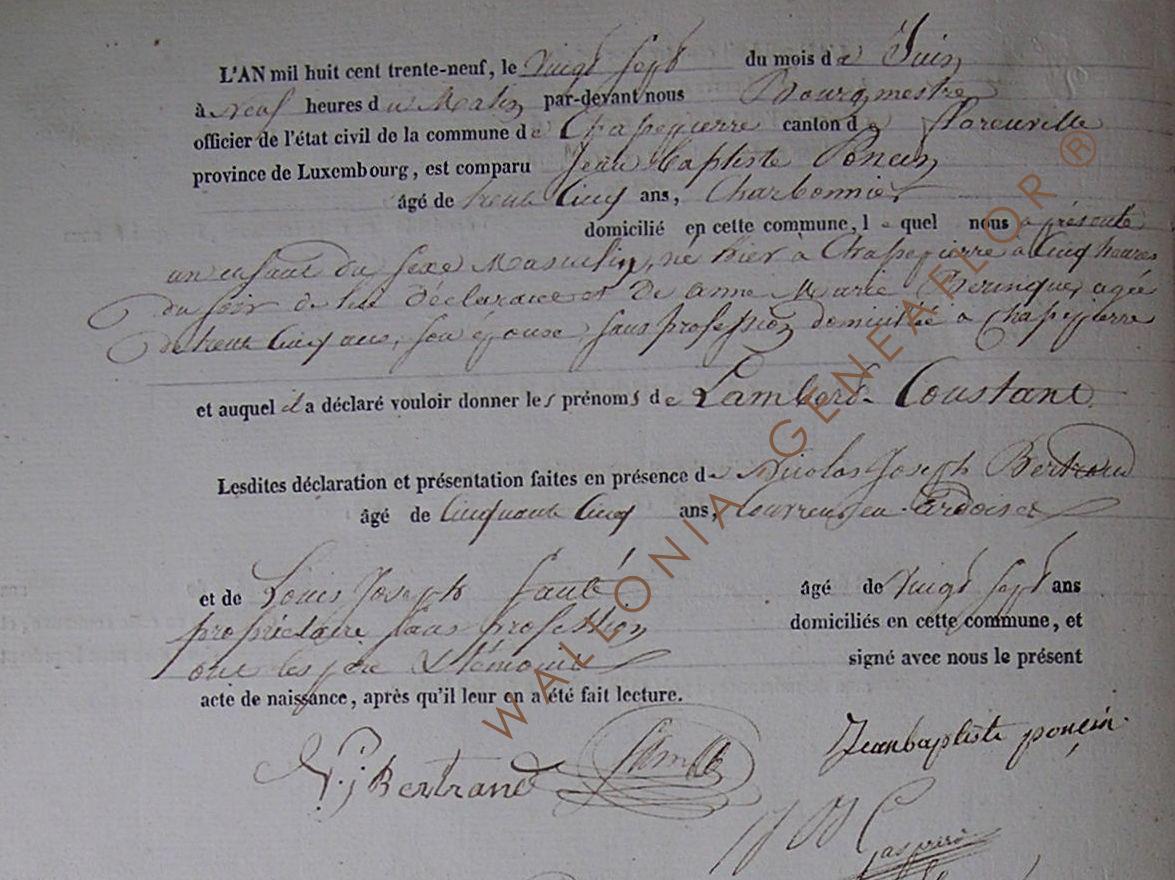 L'AN mil huit cent trente-neuf, le Vingt Sept du mois de Juin
à neuf heures du Matin par-devant nous Bourgmestre
officier de l'état civil de la commune de Chapepierre canton de florenville
province de Luxembourg, est comparu Jean Baptiste Poncin
âgé de trente Cinq ans, Charbonnier
domicilié en cette commune, lequel nous a présenté
un enfant du sexe Masculin, né hier à Chapepierre à Cinq heures
du soir de lui déclarant et De anne Marie agée
de trente Cinq ans, son épouse, sans profession domiciliée à Chapepierre
et auquel il a déclaré vouloir donner les prénoms de Lambert Constant
Lesdites déclaration et présentation faites en présence de Nicolas Joseph Bertrand
âgé de Cinquante Cinq ans, Couvreur en ardoises
et de Louis Joseph âgé de Vingt Sept ans
propriétaire sans profession domiciliés en cette commune, et
ont les père & témoins signé avec nous le présent
acte de naissance, après qu'il leur en a été fait lecture.
Jeanbaptiste poncin
N. j Bertrand
WALLONIA GENEAFLOR ®